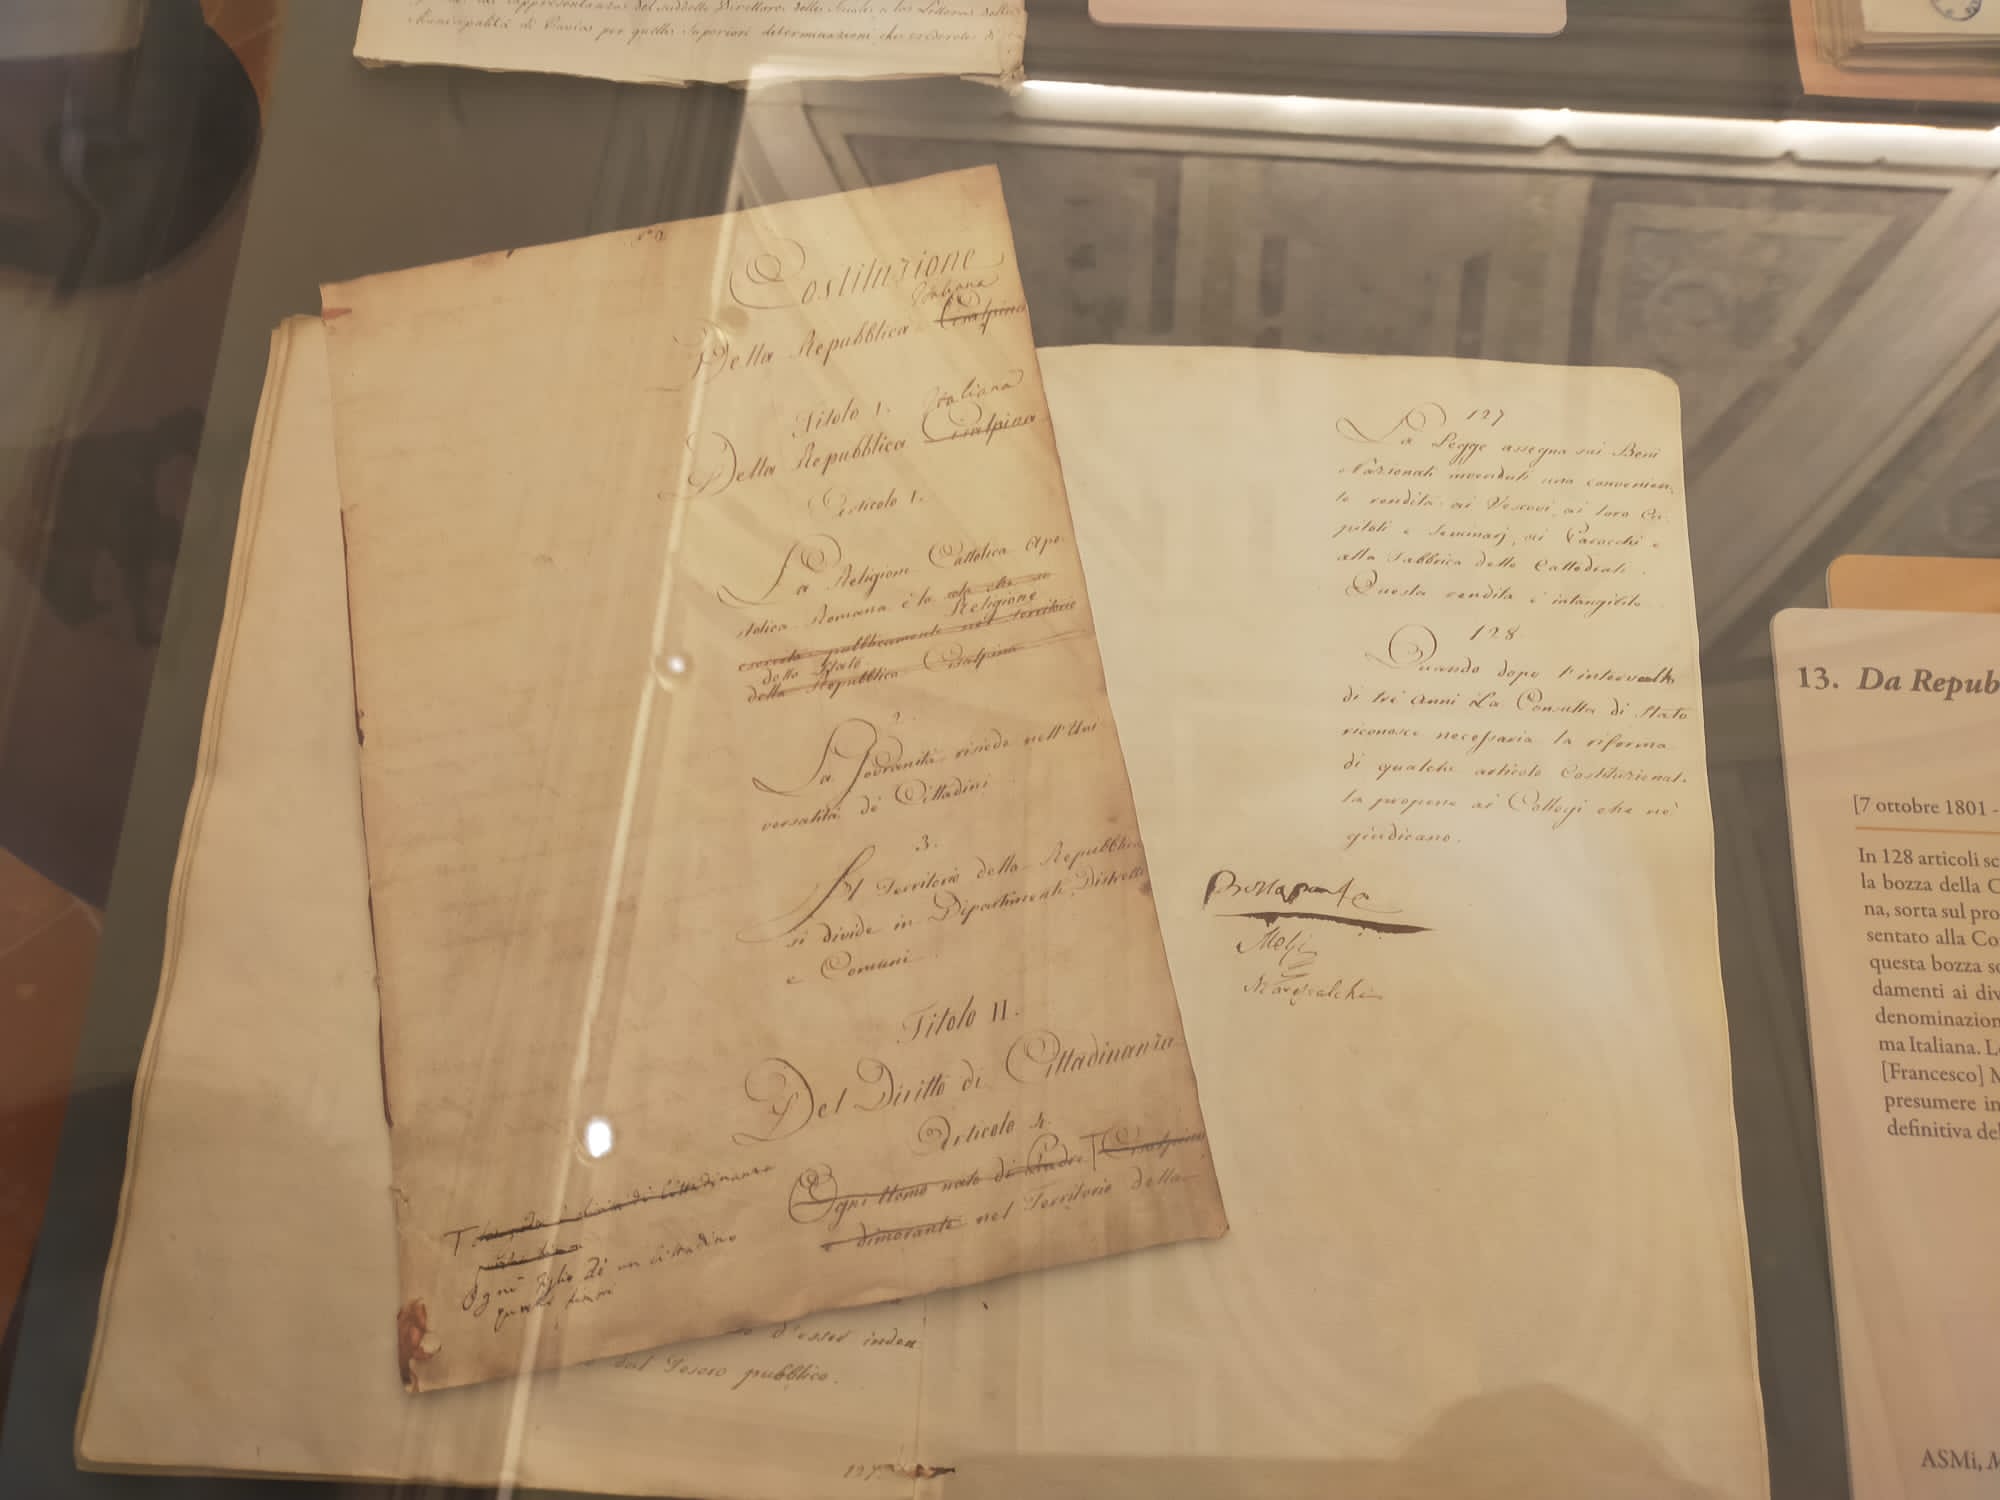 Municipalità di Pavia per quelle Superiori determinazioni che crederete di
Costituzione
Italiana
Della Repubblica Cisalpina
Titolo I.
Italiana
Della Repubblica Cisalpina
Articolo 1.
La Religione Cattolica Apo-
stolica Romana è la sola che si
Religione
esercita pubblicamente nel territorio
dello Stato
della Repubblica Cisalpina
2.
La Sovranità risiede nell'Uni
versalità de' Cittadini
3.
Il Territorio della Repubblica
si divide in Dipartimenti, Distretti
e Comuni.
Titolo II.
Del Diritto di Cittadinanza
Articolo 4.
Ogni Uomo nato di Padre Cisalpino
e dimorante nel Territorio della
di Cittadinanza
Ogni figlio di un Cittadino
d'esser inden
dal Tesoro pubblico.
127
127
La Legge assegna sui Beni
Nazionali invenduti una convenien-
te rendita ai Vescovi, ai loro Ca-
pitoli e Seminarj, ai Parochi e
alla Fabbrica delle Cattedrali.
Questa rendita è intangibile.
128
Quando dopo l'intervallo
di tre Anni La Consulta di Stato
riconosce necessaria la riforma
di qualche articolo Costituzionale
la propone ai Collegi che ne
giudicano.
Bonaparte
Melzi
Marescalchi
13. Da Repub
[7 ottobre 1801 -
In 128 articoli sc
la bozza della C
na, sorta sul pro
sentato alla Co
questa bozza so
damenti ai div
denominazion
ma Italiana. L
[Francesco] M
presumere in
definitiva del
ASMi, M